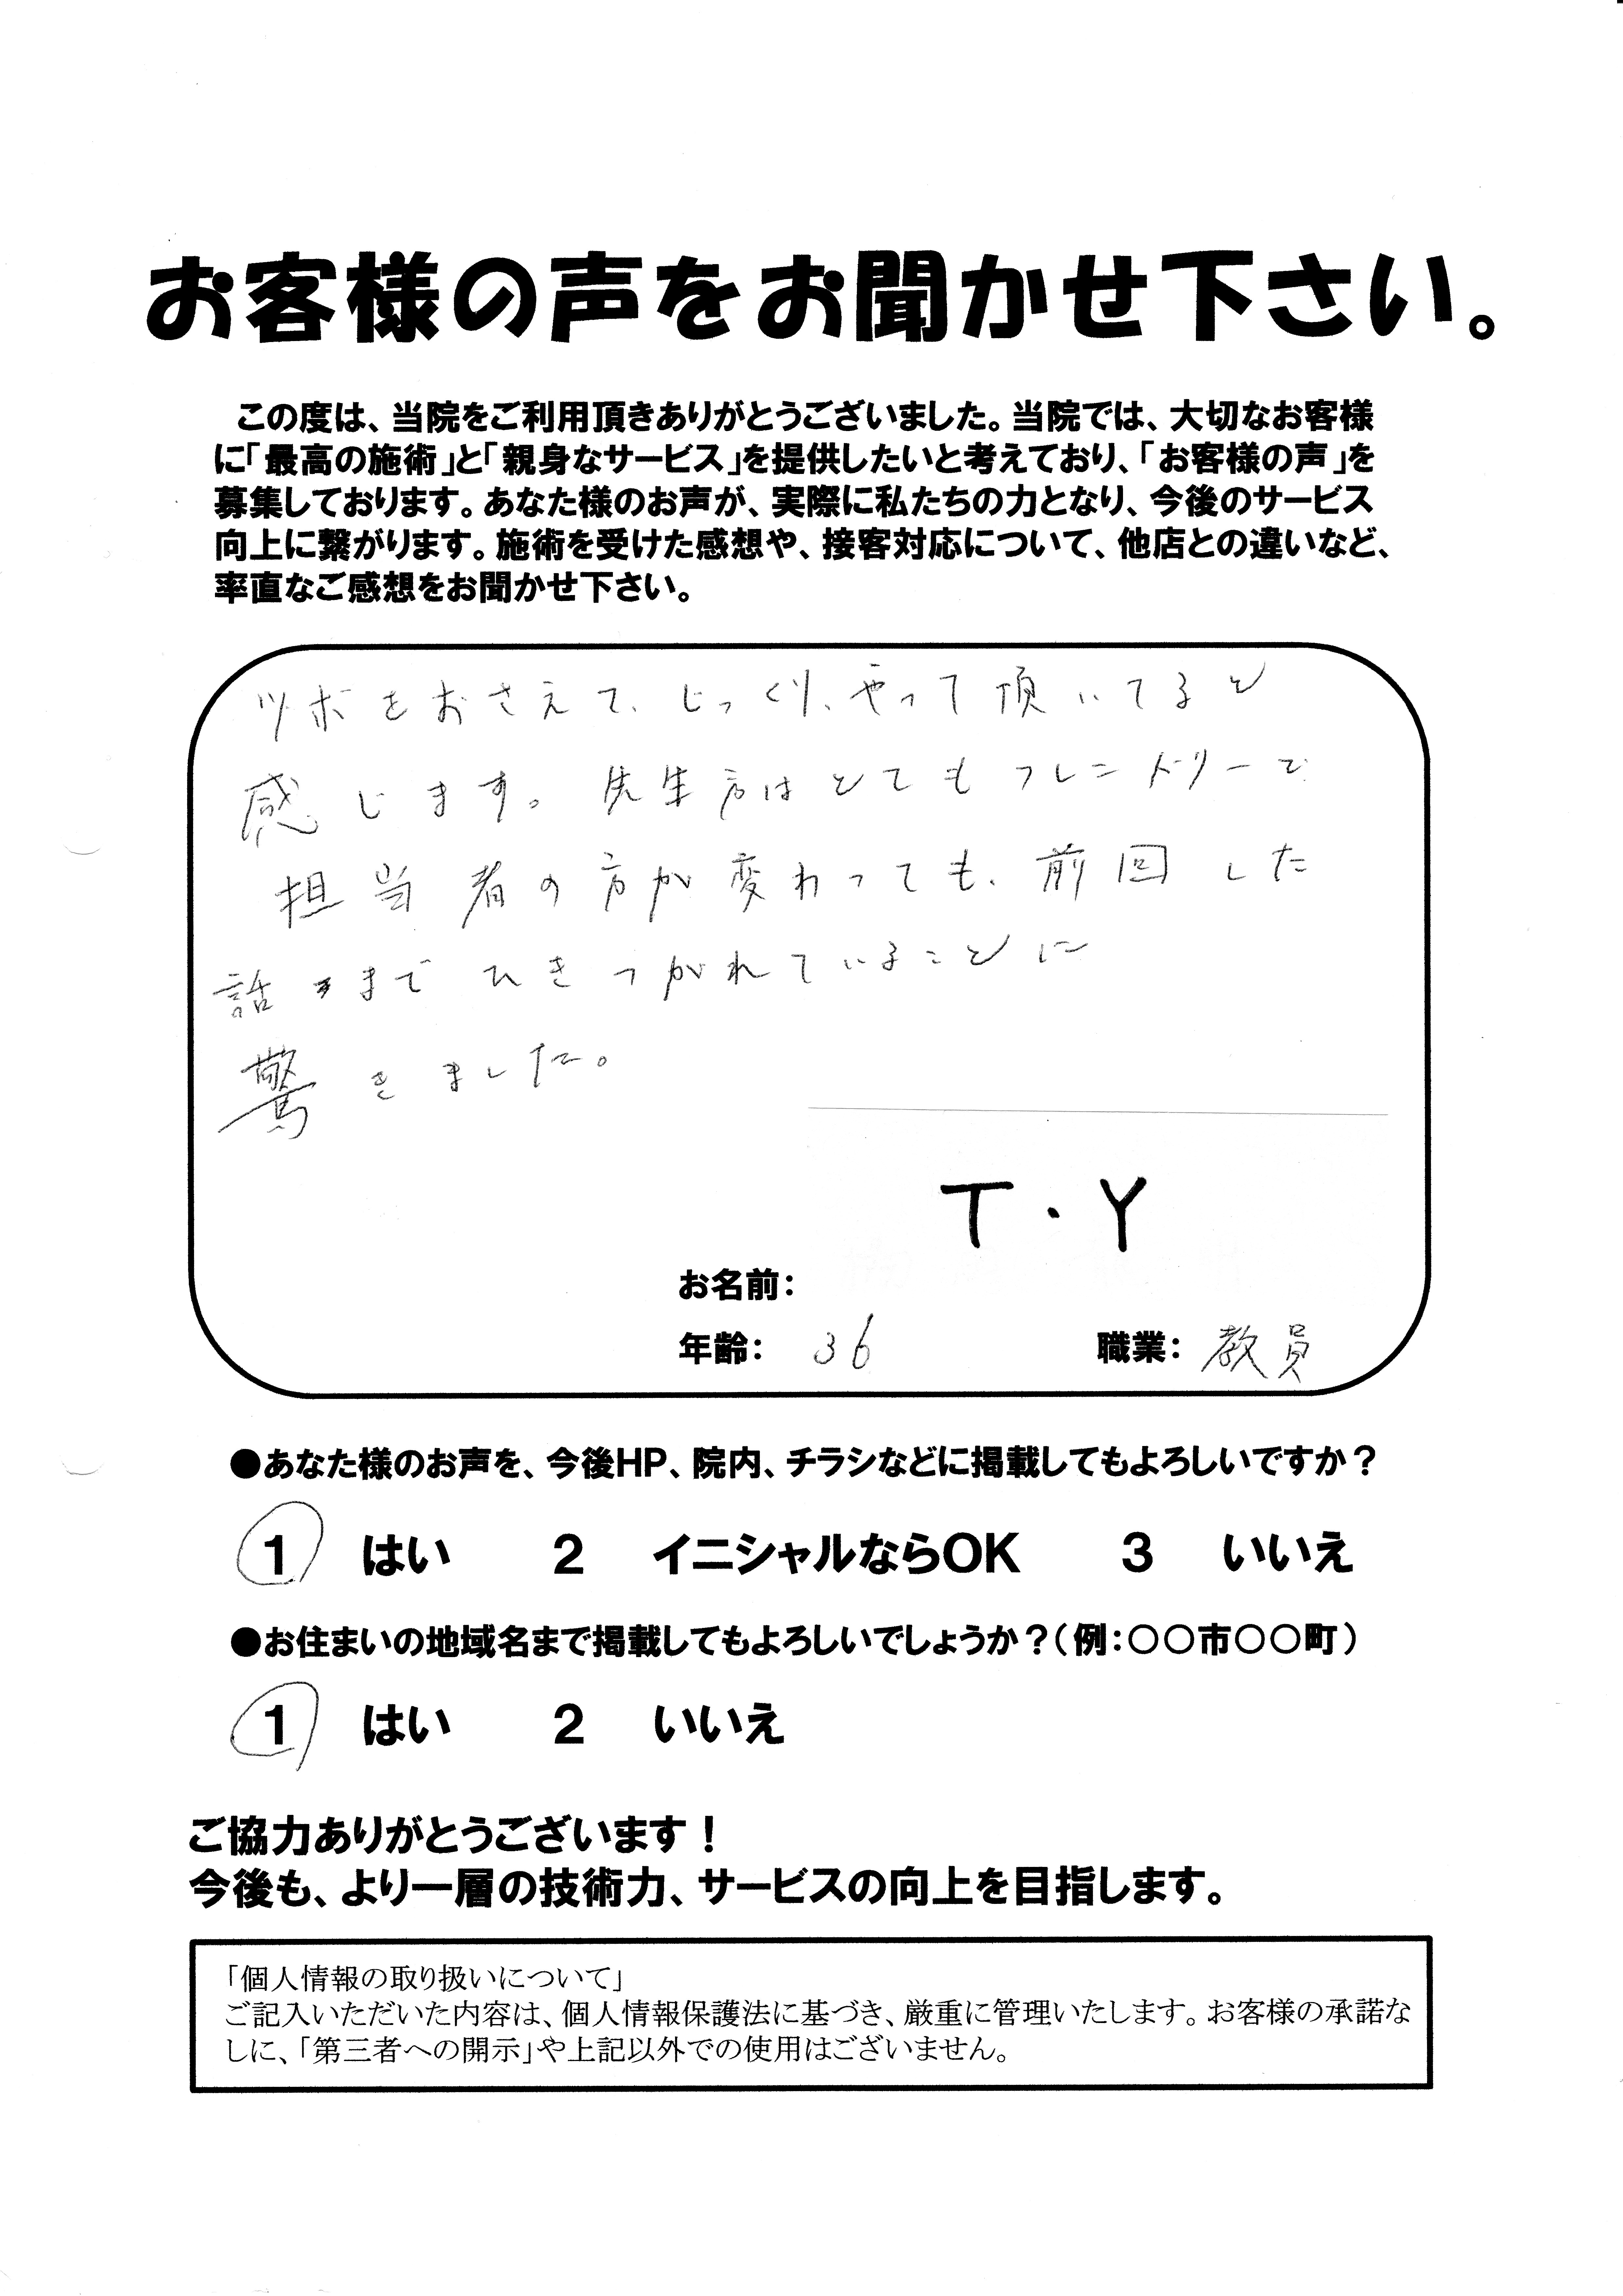 お客様の声をお聞かせ下さい。
この度は、当院をご利用頂きありがとうございました。当院では、大切なお客様
に「最高の施術」と「親身なサービス」を提供したいと考えており、「お客様の声」を
募集しております。あなた様のお声が、実際に私たちの力となり、今後のサービス
向上に繋がります。施術を受けた感想や、接客対応について、他店との違いなど、
率直なご感想をお聞かせ下さい。
ツボをおさえて、じっくり、やって頂いてると
感じます。先生方はとてもフレンドリーで
担当者の方が変わっても、前回した
話まで ひきつがれていることに
驚きました。
T・Y
お名前：
年齢： 36 職業： 教員
●あなた様のお声を、今後HP、院内、チラシなどに掲載してもよろしいですか？
1 はい 2 イニシャルならOK 3 いいえ
●お住まいの地域名まで掲載してもよろしいでしょうか？（例：○○市○○町）
1 はい 2 いいえ
ご協力ありがとうございます！
今後も、より一層の技術力、サービスの向上を目指します。
「個人情報の取り扱いについて」
ご記入いただいた内容は、個人情報保護法に基づき、厳重に管理いたします。お客様の承諾な
しに、「第三者への開示」や上記以外での使用はございません。